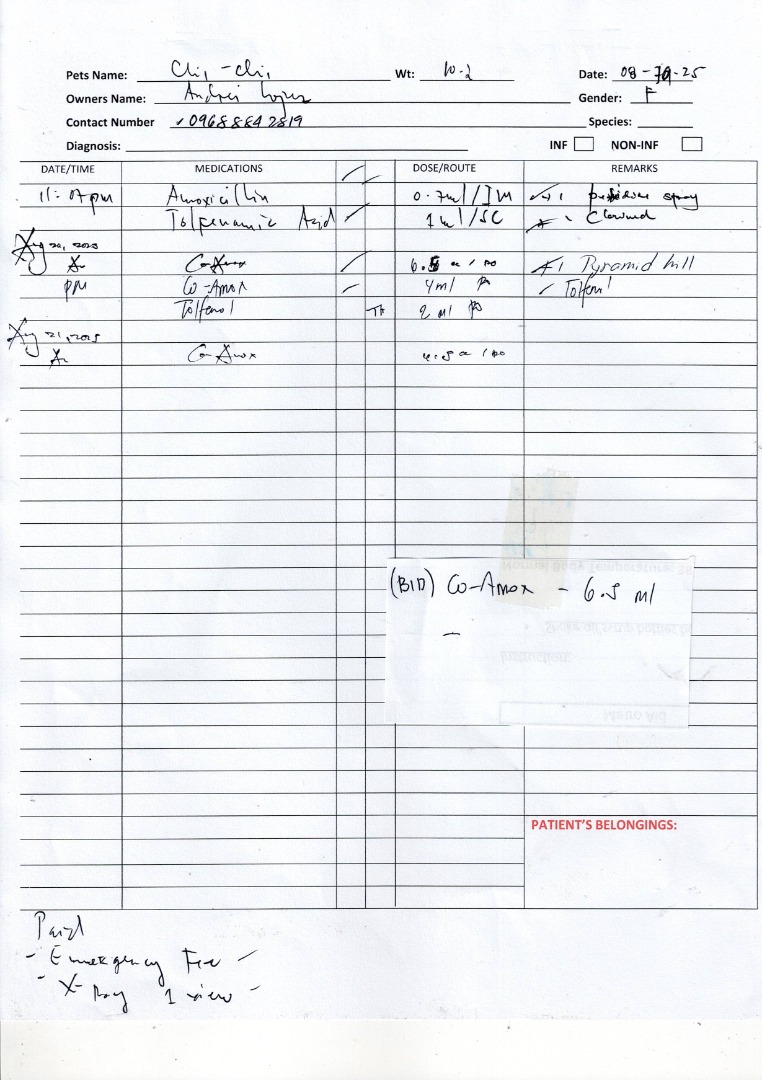 Pets Name: Chi, -chi, Wt: 10.2 Date: 08-19-25
Owners Name: Andrei Lopez Gender: F
Contact Number 09688842819 Species:
Diagnosis: INF NON-INF
DATE/TIME MEDICATIONS DOSE/ROUTE REMARKS
11:07pm Amoxicillin 0.7ml/IM #1 spray
Tolfenamic Acid 1ml/SC Clavmd
Aug 20, 2025
Am Co-Amox 6.5 cc / PO #1 Pyramid hill
pm Co-Amox 4ml PO Tolfenol
Tolfenol 2 ml PO
Aug 21, 2025
Am Co-Amox cc / PO
(BID) Co-Amox - 6.5 ml
-
Normal Body Temperature: 38
Shake all syrup bottles
Instruction:
PATIENT'S BELONGINGS:
Paid
- Emergency Fee
- X-Ray 1 view